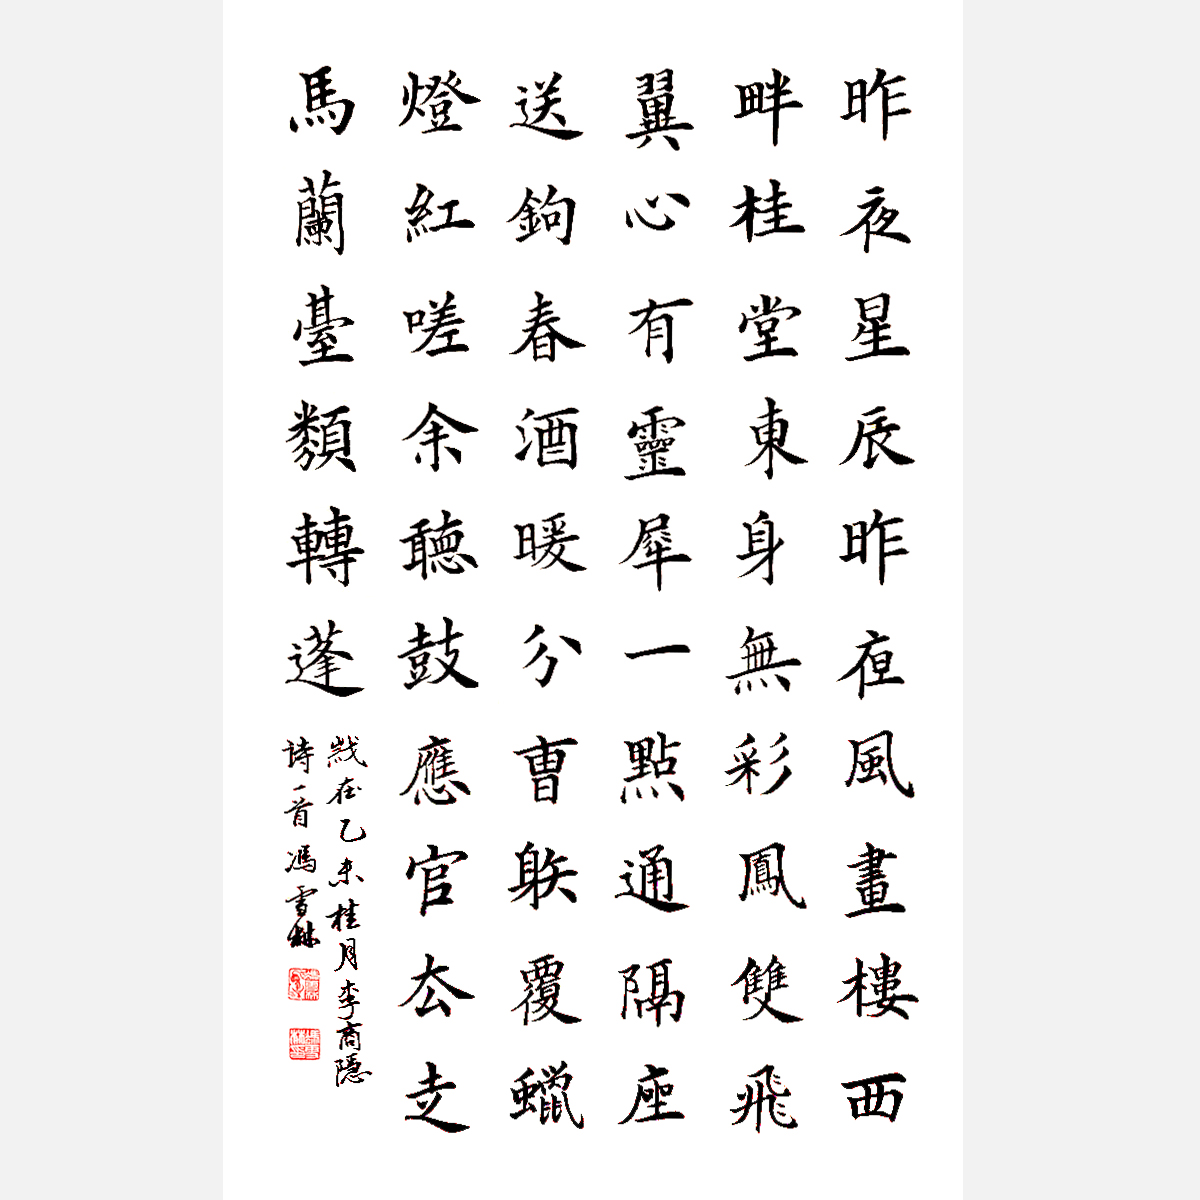 昨夜星辰昨夜風畫樓西
畔桂堂東身無彩鳳雙飛
翼心有靈犀一點通隔座
送鉤春酒暖分曹躲覆蠟
燈紅嗟余聽鼓應官去走
馬蘭臺類轉蓬
歲在乙未桂月李商隱
詩一首馮雪林